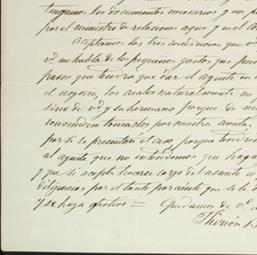 tengamos los documentos necesarios y un p
por el ministro de relaciones aquí y
aceptamos las tres condiciones que v
v.^d no habla de los pequeños gastos que pue
pasos que tendrá que dar el agente en
el negocio, los cuales naturalmente no
sino de v.^d y su hermano porque de
convendría tomarlos por nuestra cuenta.
por si se presentará el caso porque
al agente que no intendemos que haga
y que si acepta hacerse cargo del asunto
diligencias, por el tanto por ciento que se le
y se haga efectivo = Quedamos de v.^d